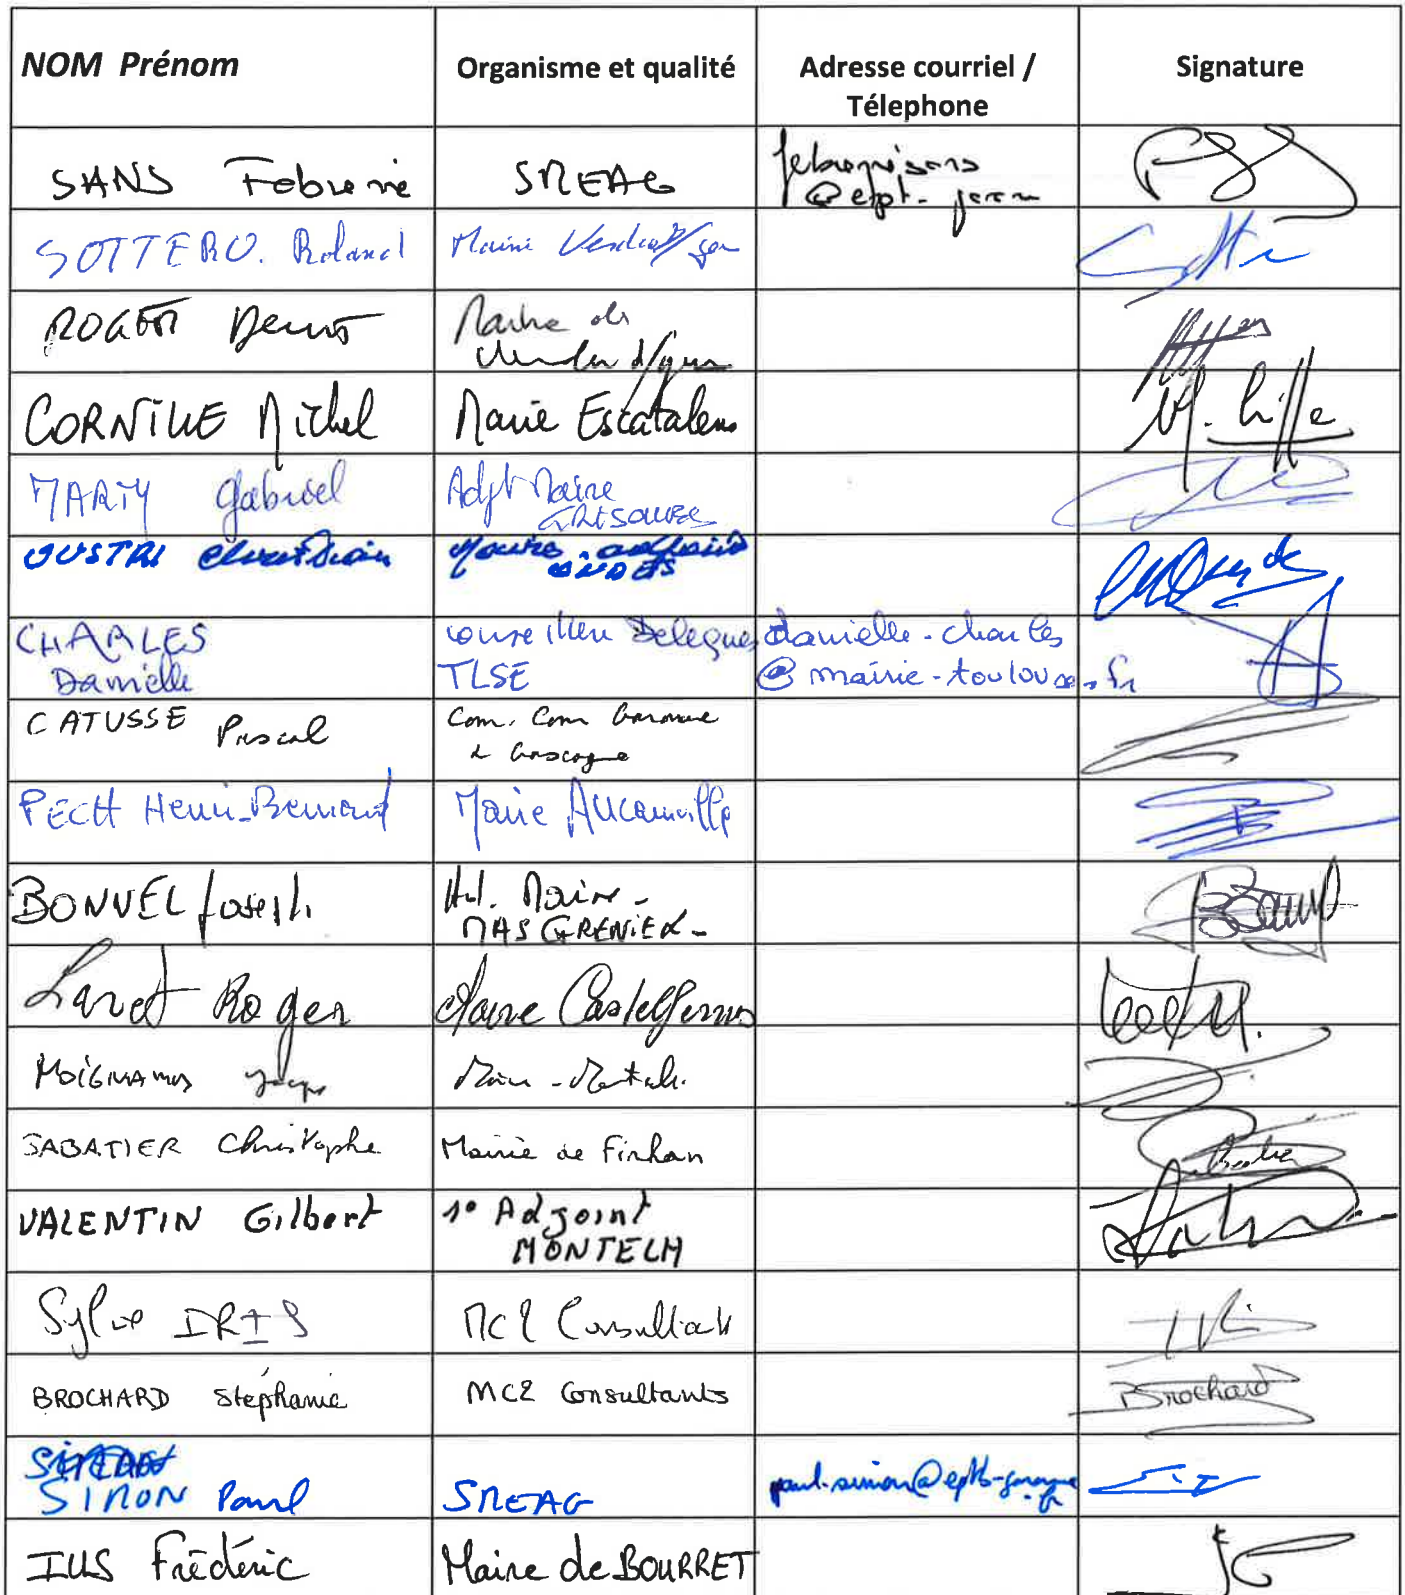 NOM Prénom
Organisme et qualité
Adresse courriel /
Télephone
Signature
SANS Fabienne
SMEAG
@ept-
SOTTERO. Roland
Mairie Verdun/gar
ROGER Denis
Mairie de
Verdun s/gar
CORNILLE Michel
Mairie Escatalens
MARTY Gabriel
Adjt Maire
GRISOLLES
OUSTRI Christian
ONDES
CHARLES
Danielle
conseillère Deleguée
TLSE
danielle-charles
@ mairie-toulouse.fr
CATUSSE Pascal
Com. Com Garonne
& Gascogne
PECH Henri-Bernard
Mairie AUCamville
BONNEL Joseph
Adj. Maire -
MAS GRENIER -
Laret Roger
Maire Castelferrus
Maire -
SABATIER Christophe
Mairie de Finhan
VALENTIN Gilbert
1° Adjoint
MONTECH
Sylvie IRIS
MC2 Consultants
BROCHARD Stéphanie
MC2 Consultants
Brochard
SIMON Paul
SMEAG
paul.simon@eptb-garonne
.fr
IUS Frédéric
Maire de BOURRET